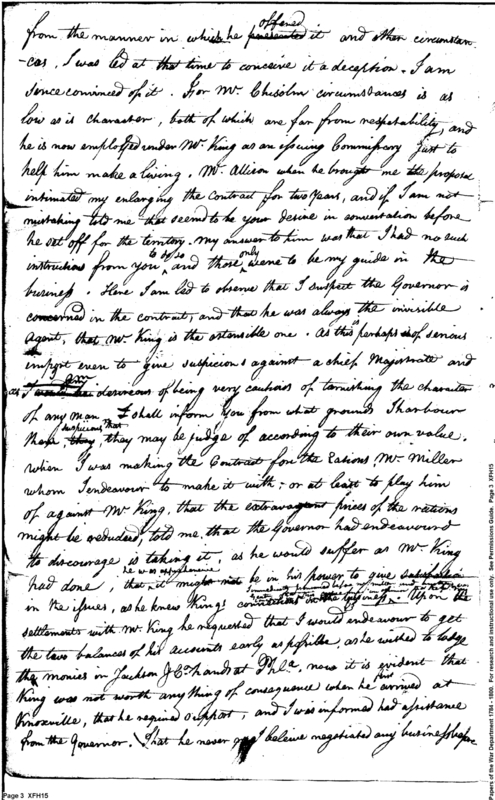 offered
from the manner in which he presented it and other circumstan-
-ces. I was led at that time to conceive it a deception. I am
since convinced of it. For Mr. Chisolm circumstances is as
low as is character, both of which are far from respectability, and
he is now employed under Mr. King as an issuing Commissary just to
help him make a living. Mr. Allison when he brought me the proposal
intimated my enlarging the Contract for two years, and if I am not
mistaking told me that seemed to be your desire in conversation before
he set off for the territory. My answer to him was that I had no such
instructions from you to do so and those only were to be my guide in the
business. Here I am led to observe that I suspect the Governor is
concerned in the contract, and that he was always the invisible
Agent, that Mr. King is the ostensible one. As this is perhaps of serious
import even to give suspicions against a chief Majestrate and
as I am desireous of being very cautious of tarnishing the character
of any man I shall inform you from what grounds I harbour
these suspicions that they may be judge of according to their own value.
when I was making the Contract for the Rations, Mr. Miller
whom I endeavour to make it with - or at least to play him
of against Mr. King, that the extravagent prices of the rations
might be reduced, told me that the Governor had endeavoured
to discourage is taking it, as he would suffer as Mr. King
had done, he was apprehensive that it might not be in his power to give
in the issues, as he knew Kings Upon the
settlements with Mr. King he requested that I would endeavour to get
the two balances of his accounts early as possible, as he wished to lodge
the monies in Jackson & Co hands at Phla. now it is evident that
King was not worth any thing of consequence when he first arrived at
Knoxville, that he required support, and I was informed had assistance
from the Governor. That he never I beleive negotiated any business before
Page 3 XFH15
Papers of the War Department 1784 - 1800. For research and instructional use only. See Permissions Guide. Page 3 XFH15